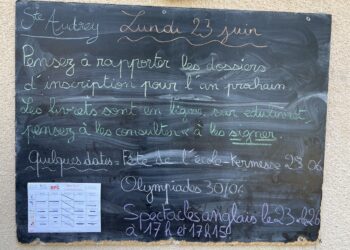 Ste Audrey
Lundi 23 juin
Pensez à rapporter les dossiers
d'inscription pour l'an prochain.
Les livrets sont en ligne, sur educonnet,
pensez à les consulter & à les signer.
Quelques dates: Fête de l'école - Kermesse 29.06
Olympiades 30/06
Spectacles anglais le 23 et 26
à 17H et 17H15